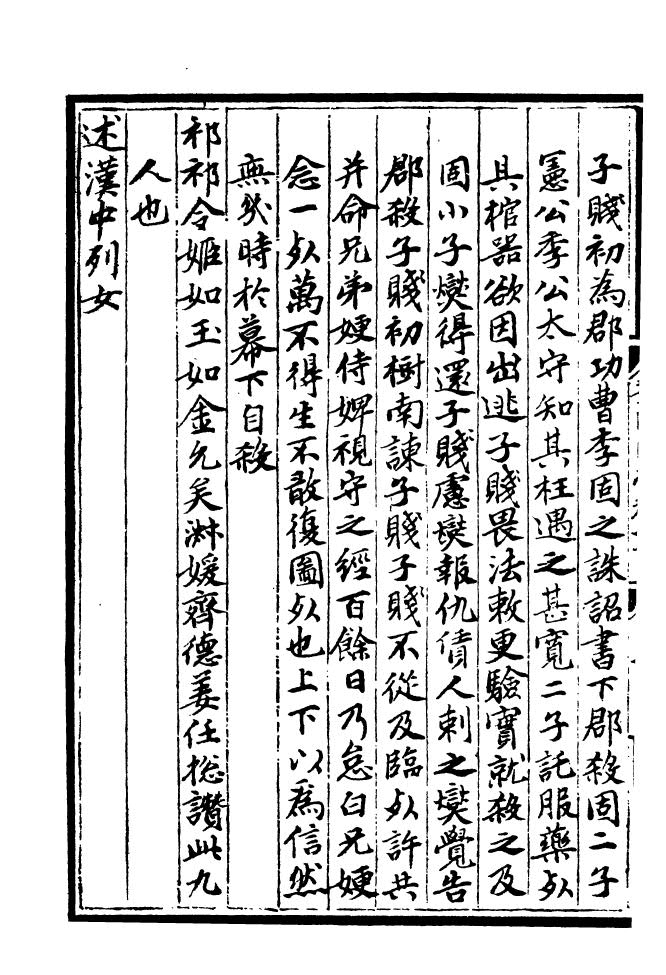 子賤初為郡功曹李固之誅詔書下郡殺固二子
憲公季公太守知其枉遇之甚寛二子託服藥夘
具棺器欲因出逃子賤畏法敕更驗實就殺之及
固小子爕得還子賤慮爕報仇債人刺之爕覺告
郡殺子賤初樹南諫子賤子賤不從及臨夘許共
并命兄弟㛐侍婢視守之經百餘日乃怠白兄㛐
念一夘萬不得生不敢復圖夘也上下以爲信然
無狀時於幕下自殺
祁祁令姬如玉如金允矣淋媛齊德姜任揔讃此九
人也
述漢中列女